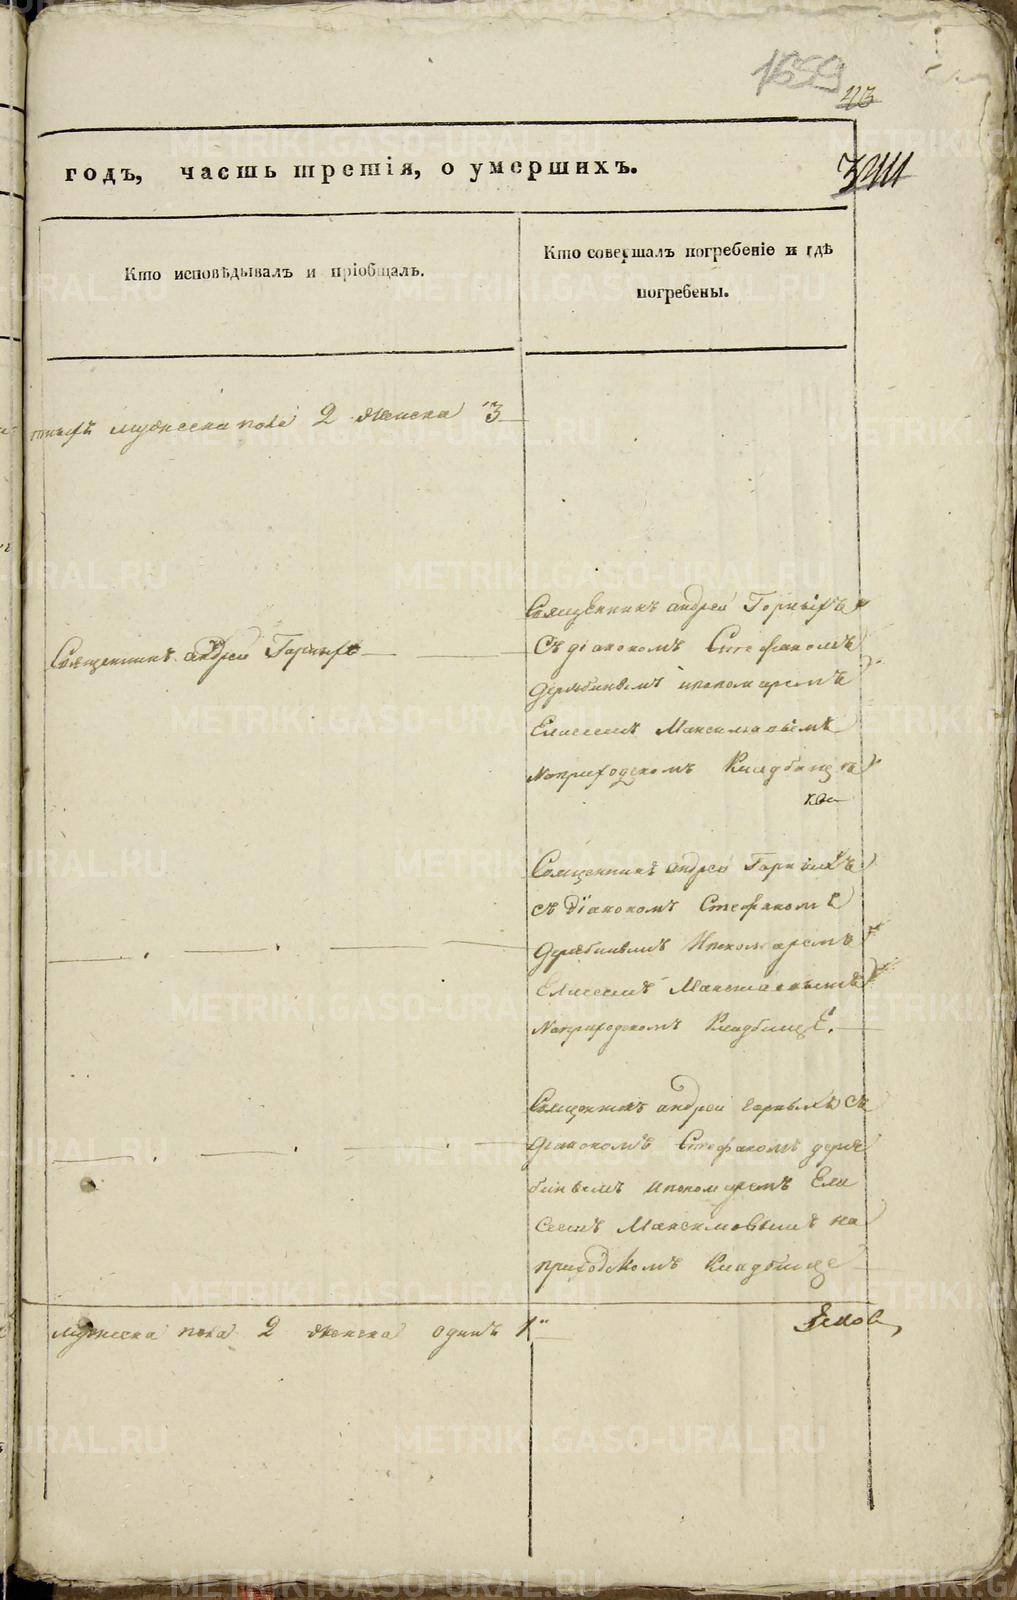 1659
годъ, часть третія, о умершихъ.
Кто исповѣдывалъ и пріобщалъ.
Кто совершалъ погребеніе и гдѣ
погребены.
мужеска пола 2 женска 3
Священникъ андрей Горныхъ
Съ діакономъ Стефаномъ
дерябинымъ ипономаремъ
Елисеемъ Максимовымъ
Наприходскомъ Кладбищѣ
Священникъ андрей Горныхъ
Священникъ андрей Горныхъ
съ діакономъ Стефаномъ
дерябинымъ Ипономаремъ
Елисеемъ Максимовымъ
Наприходскомъ Кладбище.
Священникъ андрей горныхъ съ
діакономъ Стефаномъ деря
бинымъ ипономаремъ Ели
сеемъ Максимовымъ на
приходскомъ Кладбище
мужеска пола 2 женска одинъ 1
METRIKI.GASO-URAL.RU